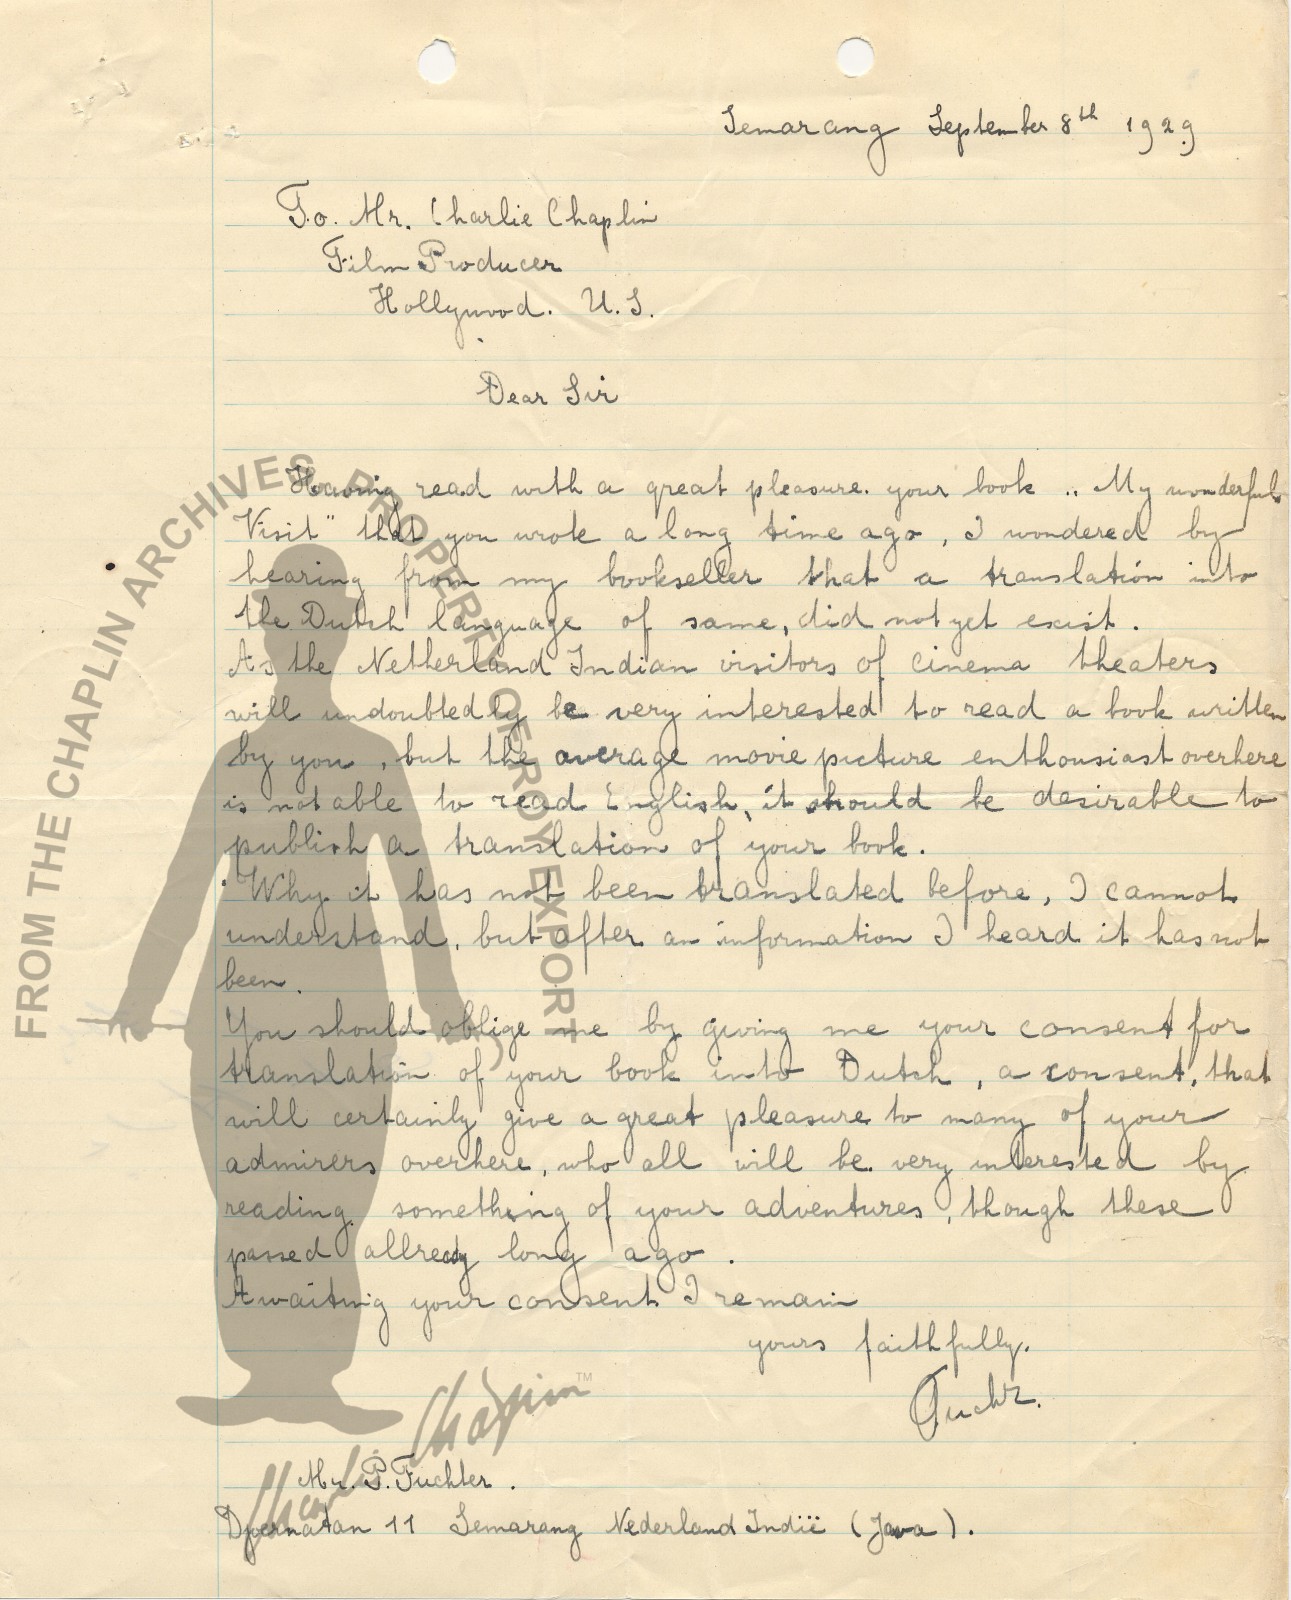 Semarang September 8th 1929
To. Mr. Charlie Chaplin
Film Producer
Hollywood. U.S.
Dear Sir
Having read with a great pleasure. your book „ My wonderful
Visit" that you wrote a long time ago, I wondered by
hearing from my bookseller that a translation into
the Dutch language of same, did not yet exist.
As the Netherland Indian visitors of cinema theaters
will undoubtedly be very interested to read a book written
by you, but the average movie picture enthousiast overhere
is not able to read English, it should be desirable to
publish a translation of your book.
Why it has not been translated before, I cannot
understand, but after an information I heard it has not
been.
You should oblige me by giving me your consent for
translation of your book into Dutch, a consent, that
will certainly give a great pleasure to many of your
admirers overhere, who all will be very interested by
reading something of your adventures, though these
passed allready long ago.
Awaiting your consent I remain
yours faithfully.
Mr. P. Fuchter.
Djoernatan 11 Semarang Nederland Indië (Java).
FROM THE CHAPLIN ARCHIVES PROPERTY OF ROY EXPORT
Charlie Chaplin™